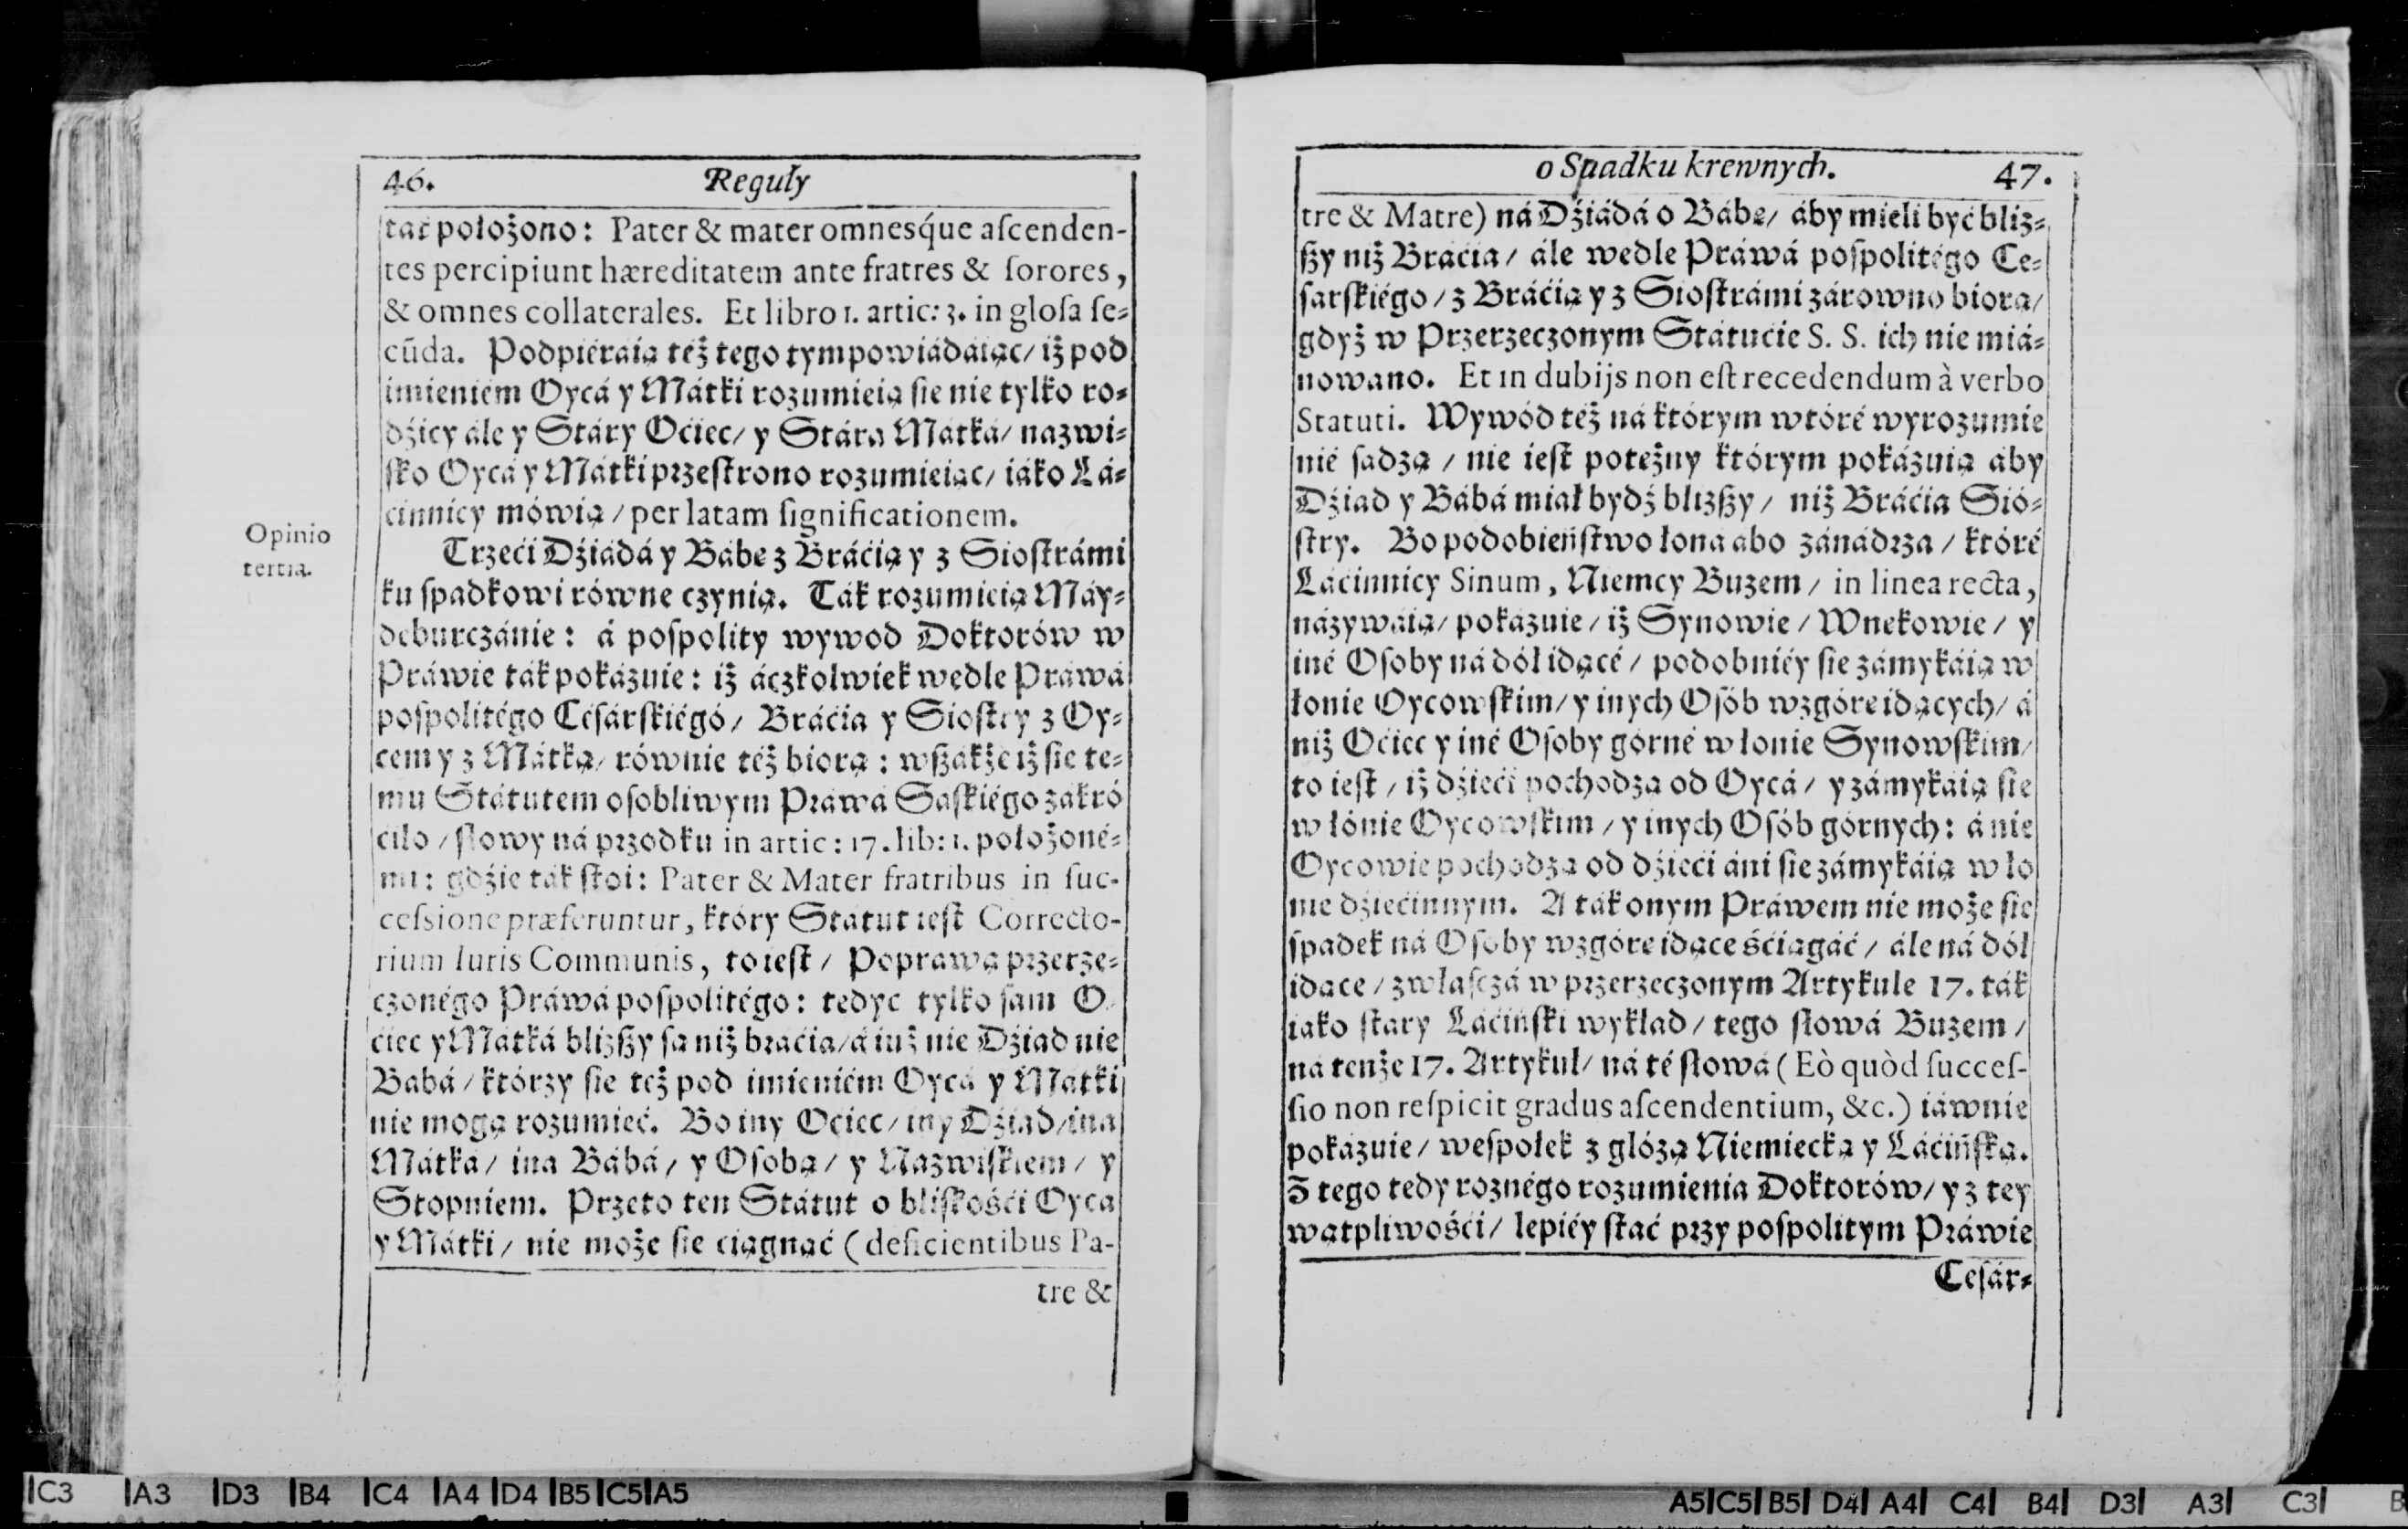 46. Reguły
tak położono: Pater & mater omnesq́ue aſcenden-
tes percipiunt hæreditatem ante fratres & ſorores,
& omnes collaterales. Et libro 1. artic: 3. in gloſa ſe-
cūda. Podpiéráią téż tego tym powiádáiąc/ iż pod
imieniém Oycá y Mátki rozumieią ſie nie tylko ro-
dźicy ále y Stáry Oćiec/ y Stára Mátká/ nazwi-
ſko Oycá y Mátki przeſtrono rozumieiąc/ iáko Łá-
ćinnicy mówią/ per latam ſignificationem.
Opinio
tertia.
Trzeći Dźiádá y Bábę z Bráćią y z Sioſtrámi
ku ſpadkowi równe czynią. Ták rozumieią Máy-
deburczánie: á poſpolity wywod Doktorów w
Práwie ták pokázuie: iż áczkolwiek wedle Práwá
poſpolitégo Céſárſkiégó/ Bráćia y Sioſtry z Oy-
cem y z Mátką/ równie téż biorą: wſzákże iż ſie te-
mu Státutem oſobliwym Práwá Sáſkiégo zákró
ćiło/ ſłowy ná przodku in artic: 17. lib: 1. położoné-
mi: gdźie ták ſtoi: Pater & Mater fratribus in ſuc-
ceſsione præferuntur, który Státut ieſt Correcto-
rium Iuris Communis, to ieſt/ Popráwą przerze-
czonégo Práwá poſpolitégo: tedyc tylko ſam O-
ćiec y Mátká bliżſzy ſą niż bráćia/ á iuż nie Dźiad nie
Bábá/ którzy ſie też pod imieniém Oycá y Mátki
nie mogą rozumieć. Bo iny Oćiec/ iny Dźiad/ ina
Mátká/ ina Bábá/ y Oſobą/ y Nazwiſkiem/ y
Stopniem. Przeto ten Státut o bliſkośći Oycá
y Mátki/ nie może ſie ciągnąć (deficientibus Pa-
tre &
o Spadku krewnych. 47.
tre & Matre) ná Dźiádá o Bábę/ áby mieli być bliż-
ſzy niż Bráćia/ ále wedle Práwá poſpolitégo Ce-
ſarſkiégo/ z Bráćią y z Sioſtrámi zárowno biorą/
gdyż w Przerzeczonym Státućie S. S. ich nie miá-
nowano. Et in dubijs non eſt recedendum à verbo
Statuti. Wywód téż ná którym wtóré wyrozumie
nié ſadzą/ nie ieſt potężny którym pokázuią áby
Dźiad y Bábá miał bydź bliżſzy/ niż Bráćia Sió-
ſtry. Bo podobieńſtwo łona ábo zánádrza/ któré
Láćinnicy Sinum, Niemcy Buzem/ in linea recta,
názywáią/ pokázuie/ iż Synowie/ Wnękowie/ y
iné Oſoby ná dół idącé/ podobniéy ſie zámykáią w
łonie Oycowſkim/ y inych Oſób wzgórę idących/ á
niż Oćiec y iné Oſoby górné w łonie Synowſkim/
to ieſt/ iż dźieći pochodzą od Oycá/ y zámykáią ſie
w łónie Oycowſkim/ y inych Oſób górnych: á nie
Oycowie pochodzą od dźieći áni ſie zámykáią w ło
nie dźiećinnym. A ták onym Práwem nie może ſie
ſpadek ná Oſoby wzgórę idące śćiągáć/ ále ná dól
idące/ zwłaſczá w przerzeczonym Artykule 17. ták
iáko ſtary Láćińſki wykład/ tego ſłowá Buzem/
ná tenże 17. Artykuł/ ná té ſłowá (Eò quòd ſucceſ-
ſio non reſpicit gradus aſcendentium, &c.) iáwnie
pokázuie/ weſpołek z glózą Niemiecką y Láćińſką.
Z tego tedy roznégo rozumienia Doktorów/ y z tey
wątpliwośći/ lepiéy ſtać przy poſpolitym Práwie
Ceſár-
C3 A3 D3 B4 C4 A4 D4 B5 C5 A5
A5 C5 B5 D4 A4 C4 B4 D3 A3 C3 B